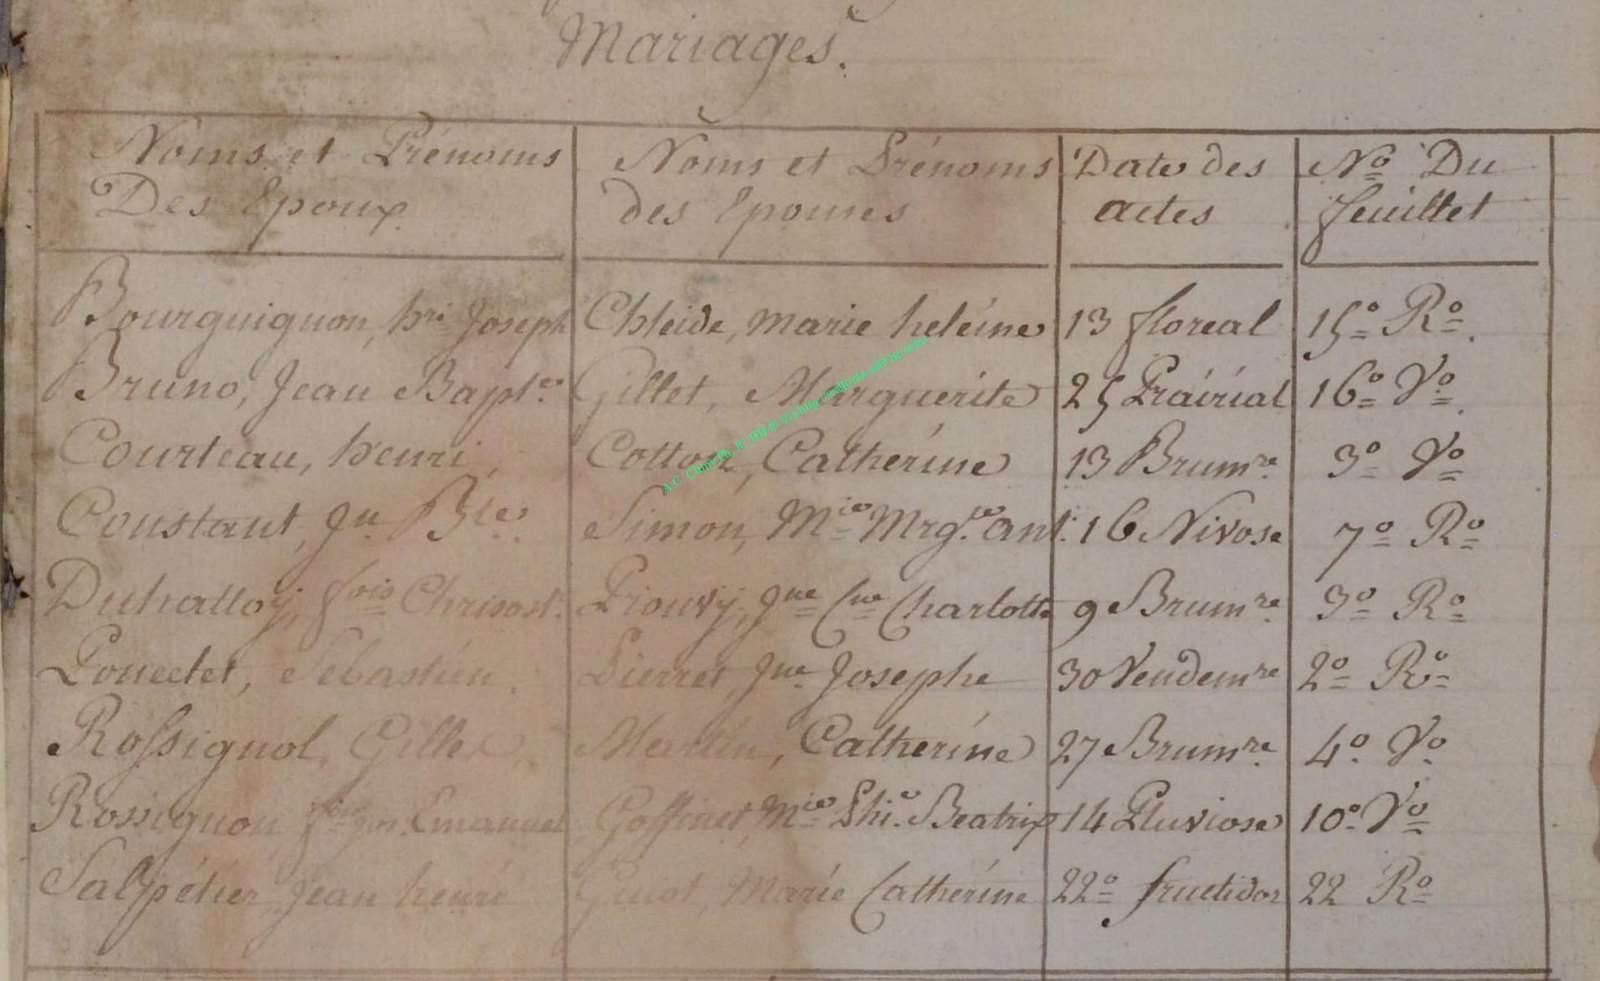 Mariages.
Noms et Prénoms Des Epoux Noms et Prénoms des Epouses Date des actes No Du feuillet
Bourguignon, hri Joseph Chleide, marie heleine 13 floreal 15o Ro.
Bruno, Jean Bapte. Gillet, Marguerite 25 Prairial 16o Vo.
Courteau, henri, Cotton, Catherine 13 Brumre 3o Vo
Constant, Jn Bte. Simon, Mie Mrgte ant. 16 Nivose 7o Ro
Duhattoy, fois Chrisost. Piouvy, Jne Cne Charlotte 9 Brumre 3o Ro
Pouectet, Sebastien. Pierret Jne Josephe 30 Vendemre 2o Ro
Rossignol, Gilles Martin, Catherine 27 Brumre 4o Vo
Rossignon Emanuel Goffinet, Mie Phi. Beatrix 14 Pluviose 10o Vo
Salpétier, Jean henri Guiot, Marie Catherine 22o fructidor 22 Ro